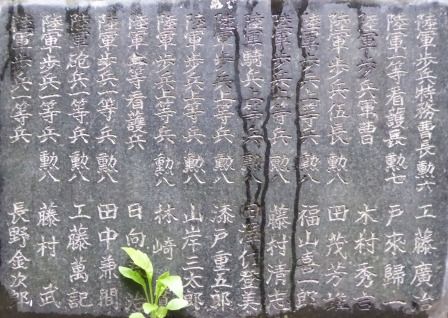 陸軍歩兵特務曹長勲六 工藤廣治
陸軍一等看護長勲七 戸來歸一
陸軍歩兵軍曹 木村秀吉
陸軍歩兵伍長勲八 田茂芳雄
陸軍歩兵上等兵勲八 福山喜一郎
陸軍歩兵上等兵勲八 藤村清志
陸軍騎兵上等兵勲八 信登美
陸軍歩兵上等兵勲八 漆戸重五郎
陸軍歩兵上等兵勲八 山岸三太郎
陸軍歩兵上等兵勲八 林崎
陸軍上等看護兵 日向
陸軍歩兵一等兵勲八 田中兼間
陸軍砲兵一等兵勲八 工藤萬記
陸軍歩兵一等兵勲八 藤村武
陸軍歩兵一等兵 長野金次郎